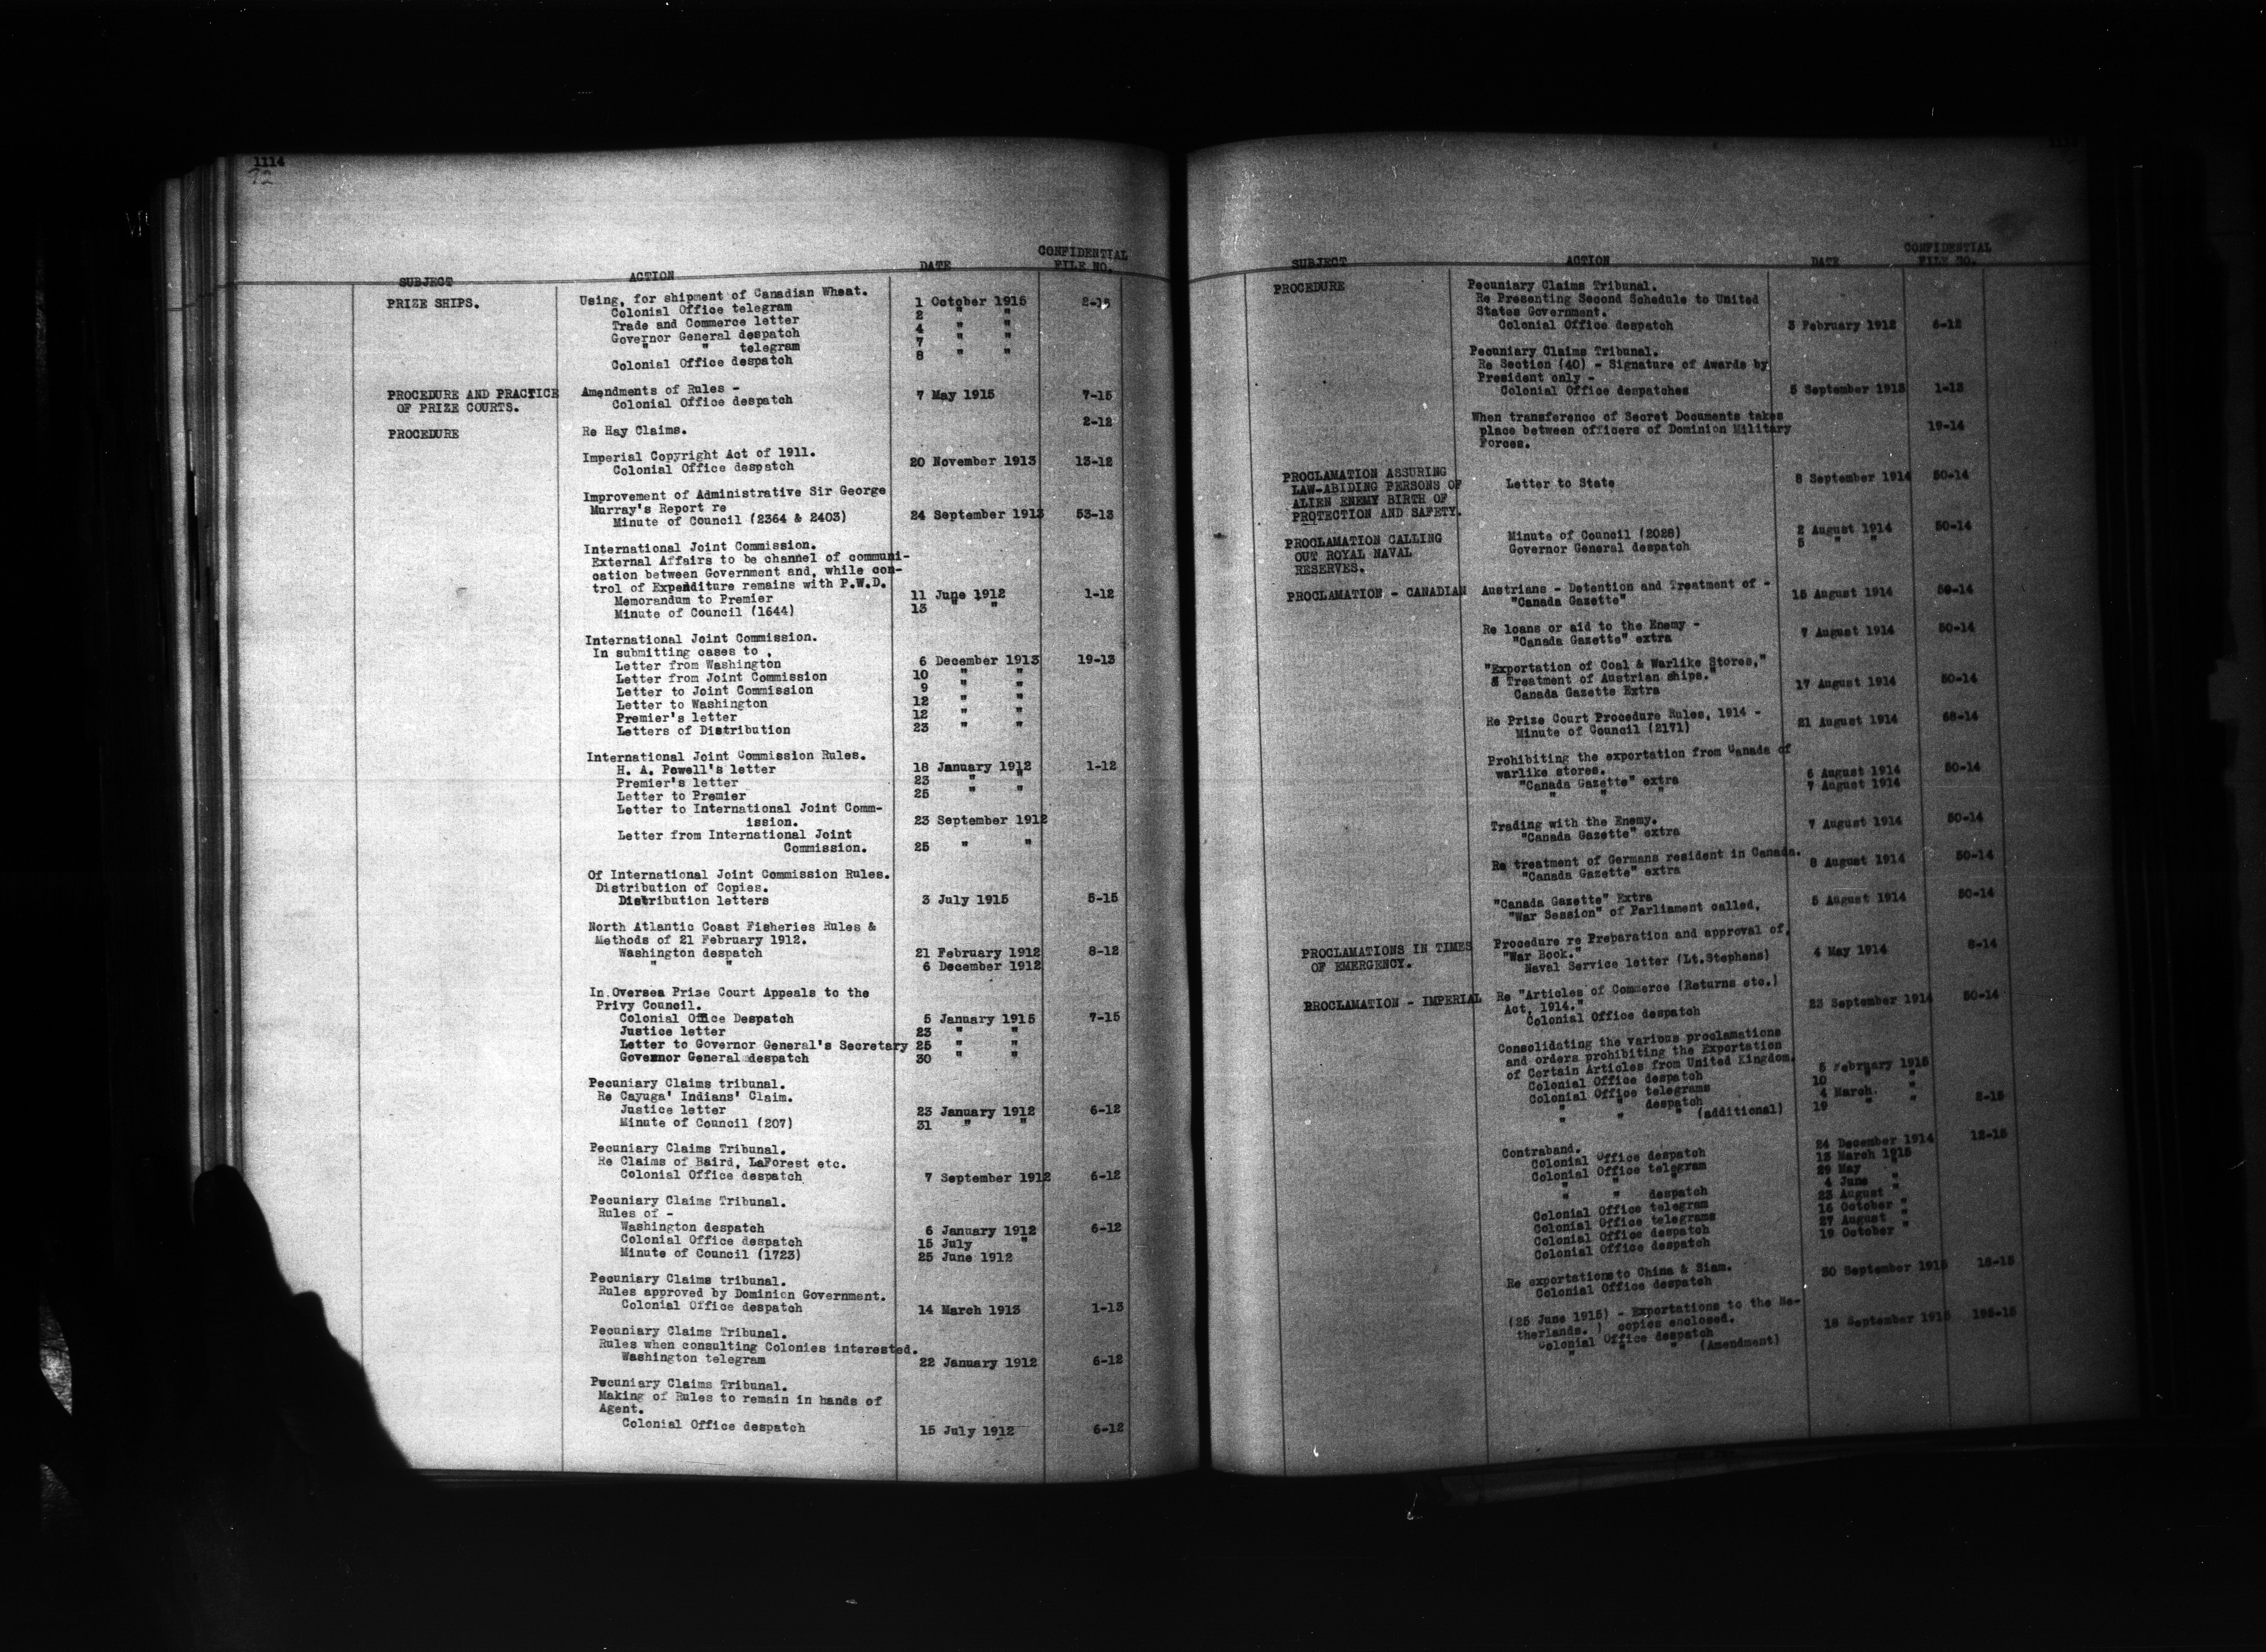 1114
72
SUBJECT ACTION DATE CONFIDENTIAL FILE NO.
PRIZE SHIPS. Using, for shipment of Canadian Wheat.
Colonial Office telegram 1 October 1915 2-15
Trade and Commerce letter 2 " "
Governor General despatch 4 " "
" " telegram 7 " "
Colonial Office despatch 8 " "
PROCEDURE AND PRACTICE Amendments of Rules -
OF PRIZE COURTS. Colonial Office despatch 7 May 1915 7-15
PROCEDURE Re Hay Claims. 2-12
Imperial Copyright Act of 1911.
Colonial Office despatch 20 November 1913 13-12
Improvement of Administrative Sir George
Murray's Report re
Minute of Council (2364 & 2403) 24 September 1913 53-13
International Joint Commission.
External Affairs to be channel of communi-
cation between Government and, while con-
trol of Expenditure remains with P.W.D.
Memorandum to Premier 11 June 1912 1-12
Minute of Council (1644) 13 " "
International Joint Commission.
In submitting cases to ,
Letter from Washington 6 December 1913 19-13
Letter from Joint Commission 10 " "
Letter to Joint Commission 9 " "
Letter to Washington 12 " "
Premier's letter 12 " "
Letters of Distribution 23 " "
International Joint Commission Rules.
H. A. Powell's letter 18 January 1912 1-12
Premier's letter 23 " "
Letter to Premier 25 " "
Letter to International Joint Comm-
ission. 23 September 1912
Letter from International Joint
Commission. 25 " "
Of International Joint Commission Rules.
Distribution of Copies.
Distribution letters 3 July 1915 5-15
North Atlantic Coast Fisheries Rules &
Methods of 21 February 1912.
Washington despatch 21 February 1912 8-12
" " 6 December 1912
In Oversea Prize Court Appeals to the
Privy Council.
Colonial Office Despatch 5 January 1915 7-15
Justice letter 23 " "
Letter to Governor General's Secretary 25 " "
Governor General despatch 30 " "
Pecuniary Claims tribunal.
Re Cayuga' Indians' Claim.
Justice letter 23 January 1912 6-12
Minute of Council (207) 31 " "
Pecuniary Claims Tribunal.
Re Claims of Baird, LaForest etc.
Colonial Office despatch 7 September 1912 6-12
Pecuniary Claims Tribunal.
Rules of -
Washington despatch 6 January 1912 6-12
Colonial Office despatch 15 July "
Minute of Council (1723) 25 June 1912
Pecuniary Claims tribunal.
Rules approved by Dominion Government.
Colonial Office despatch 14 March 1913 1-13
Pecuniary Claims Tribunal.
Rules when consulting Colonies interested.
Washington telegram 22 January 1912 6-12
Pwcuniary Claims Tribunal.
Making of Rules to remain in hands of
Agent.
Colonial Office despatch 15 July 1912 6-12
SUBJECT ACTION DATE CONFIDENTIAL FILE NO.
PROCEDURE Pecuniary Claims Tribunal.
Re Presenting Second Schedule to United
States Government.
Colonial Office despatch 3 February 1912 6-12
Pecuniary Claims Tribunal.
Re Section (40) - Signature of Awards by
President only -
Colonial Office despatches 5 September 1913 1-13
When transference of Secret Documents takes
place between officers of Dominion Military 19-14
Forces.
PROCLAMATION ASSURING
LAW-ABIDING PERSONS OF Letter to State 8 September 1914 50-14
ALIEN ENEMY BIRTH OF
PROTECTION AND SAFETY.
PROCLAMATION CALLING Minute of Council (2028) 2 August 1914 50-14
OUT ROYAL NAVAL Governor General despatch 5 " "
RESERVES.
PROCLAMATION - CANADIAN Austrians - Detention and Treatment of -
"Canada Gazette" 15 August 1914 50-14
Re loans or aid to the Enemy -
"Canada Gazette" extra 7 August 1914 50-14
"Exportation of Coal & Warlike Stores,"
& Treatment of Austrian ships."
Canada Gazette Extra 17 August 1914 50-14
Re Prize Court Procedure Rules, 1914 -
Minute of Council (2171) 21 August 1914 68-14
Prohibiting the exportation from Canada of
warlike stores.
"Canada Gazette" extra 6 August 1914 50-14
" " " 7 August 1914
Trading with the Enemy.
"Canada Gazette" extra 7 August 1914 50-14
Re treatment of Germans resident in Canada.
"Canada Gazette" extra 8 August 1914 50-14
"Canada Gazette" Extra
"War Session" of Parliament called, 5 August 1914 50-14
PROCLAMATIONS IN TIMES Procedure re Preparation and approval of,
OF EMERGENCY. "War Book."
Naval Service letter (Lt.Stephens) 4 May 1914 8-14
PROCLAMATION - IMPERIAL Re "Articles of Commerce (Returns etc.)
Act, 1914."
Colonial Office despatch 23 September 1914 50-14
Consolidating the various proclamations
and orders prohibiting the Exportation
of Certain Articles from United Kingdom.
Colonial Office despatch 5 February 1915
Colonial Office telegrams 10 " "
" " despatch 4 March "
" " " (additional) 19 " " 2-15
Contraband.
Colonial Office despatch 24 December 1914 12-15
Colonial Office telegram 13 March 1915
" " " 29 May "
" " despatch 4 June "
Colonial Office telegram 23 August "
Colonial Office telegrams 16 October "
Colonial Office despatch 27 August "
Colonial Office despatch 19 October "
Re exportations to China & Siam.
Colonial Office despatch 30 September 1915 18-15
(25 June 1915) - Exportations to the Ne-
therlands. ) copies enclosed.
Colonial Office despatch 18 September 1915 195-15
" " " (Amendment)